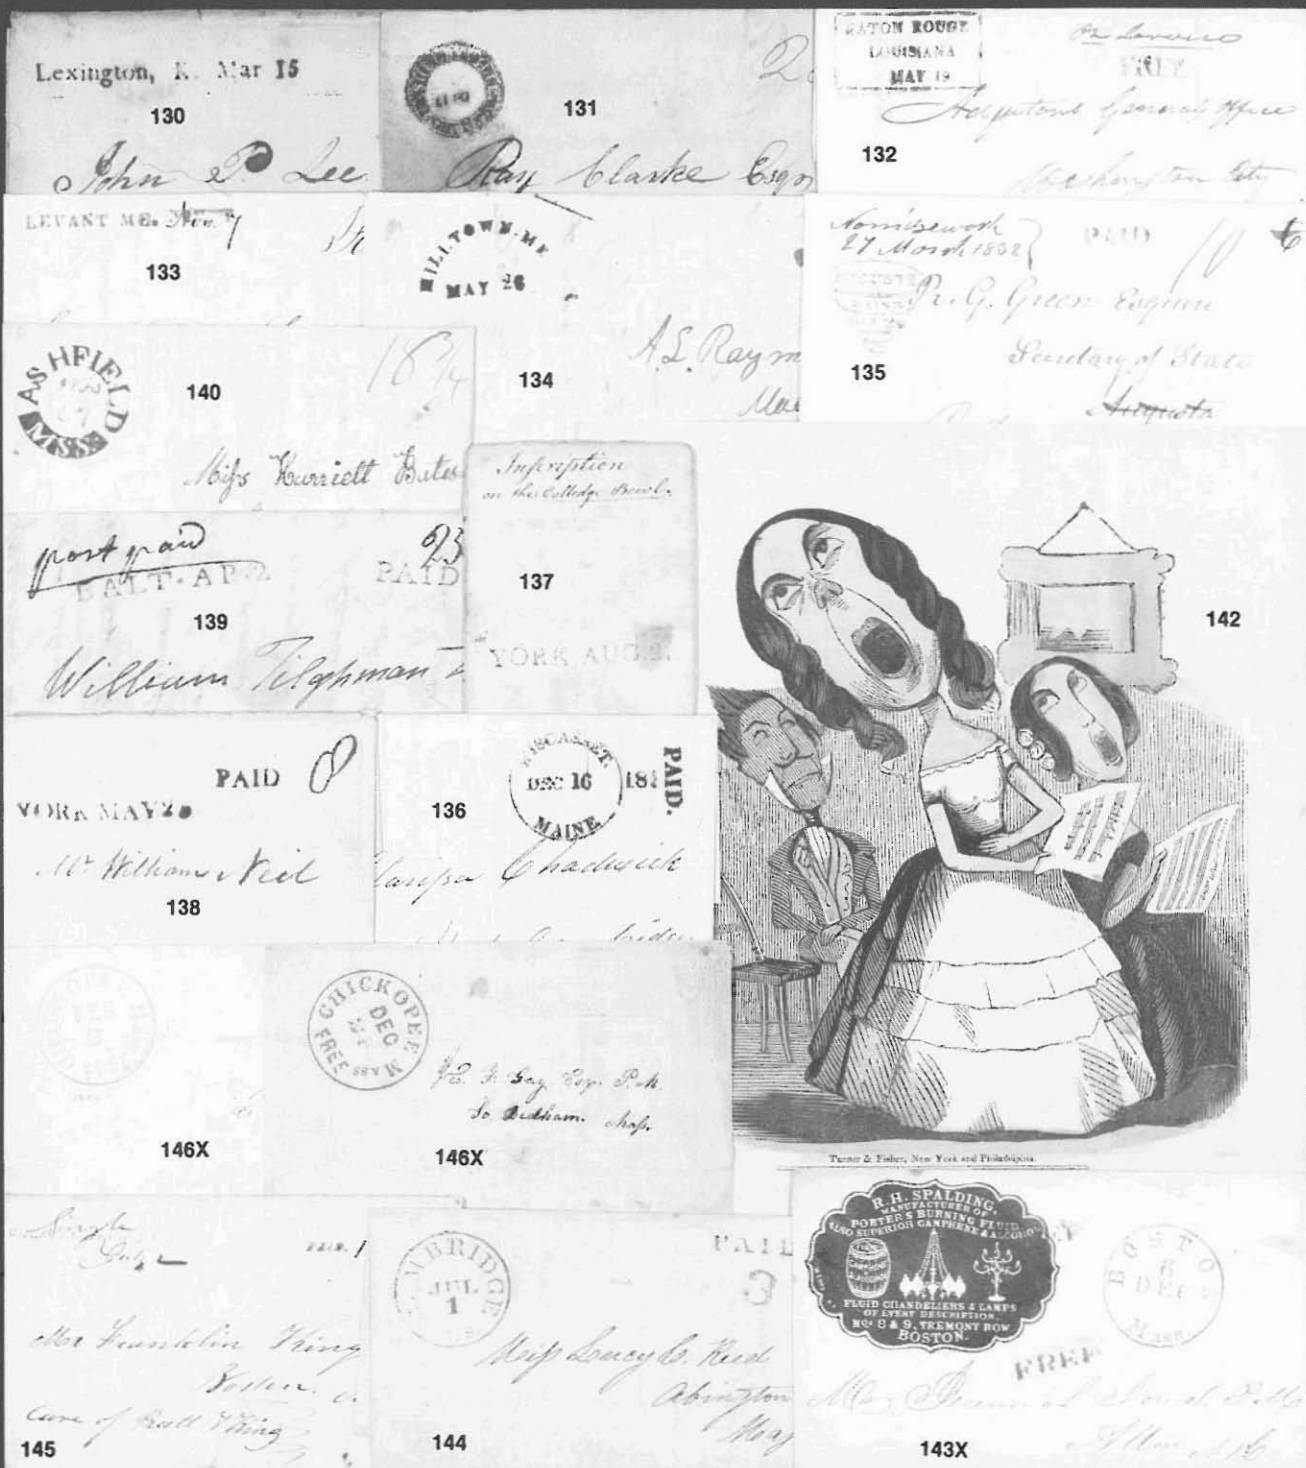 Lexington, K. Mar 15
130
John P. Lee
131
Ray Clarke Esqr
BATON ROUGE
LOUISIANA
MAY 19
FREE
Adjutant General's Office
132
Washington City
LEVANT ME. Nov. 7
133
MILLTOWN. ME
MAY 26
A.L. Raym
134
Norridgewock
27 March 1832
PAID
10
6
R. G. Green Esquire
Secretary of State
135
Augusta
ASHFIELD
MSS.
27
140
18 3/4
Miss Harriett Bates
Inscription
on the Colledge Bowl.
137
YORK AUG.
post paid
BALT. AP. 2
PAID
139
William Tilghman
142
PAID 8
YORK MAY
Mr William Neil
138
WISCASSET.
DEC 16
MAINE
181
PAID.
136
Chadwick
FEB
FREE
146X
CHICKOPEE
DEC
FREE
MASS
Gay Esqr. P.M.
So Dedham. Mass.
146X
Turner & Fisher, New York and Philadelphia.
Single
PAID. 1
Mr Franklin King
Boston.
Care of Hall & King
145
CAMBRIDGE
JUL
1
PAID
3
Miss Lucy C. Reed
Abington
144
R. H. SPALDING,
MANUFACTURER OF
PORTER'S BURNING FLUID
ALSO SUPERIOR CAMPHENE & ALCOHOL
FLUID CHANDELIERS & LAMPS
OF EVERY DESCRIPTION.
NOS 8 & 9, TREMONT ROW
BOSTON.
BOSTON
6
DEC
Mass.
FREE
143X